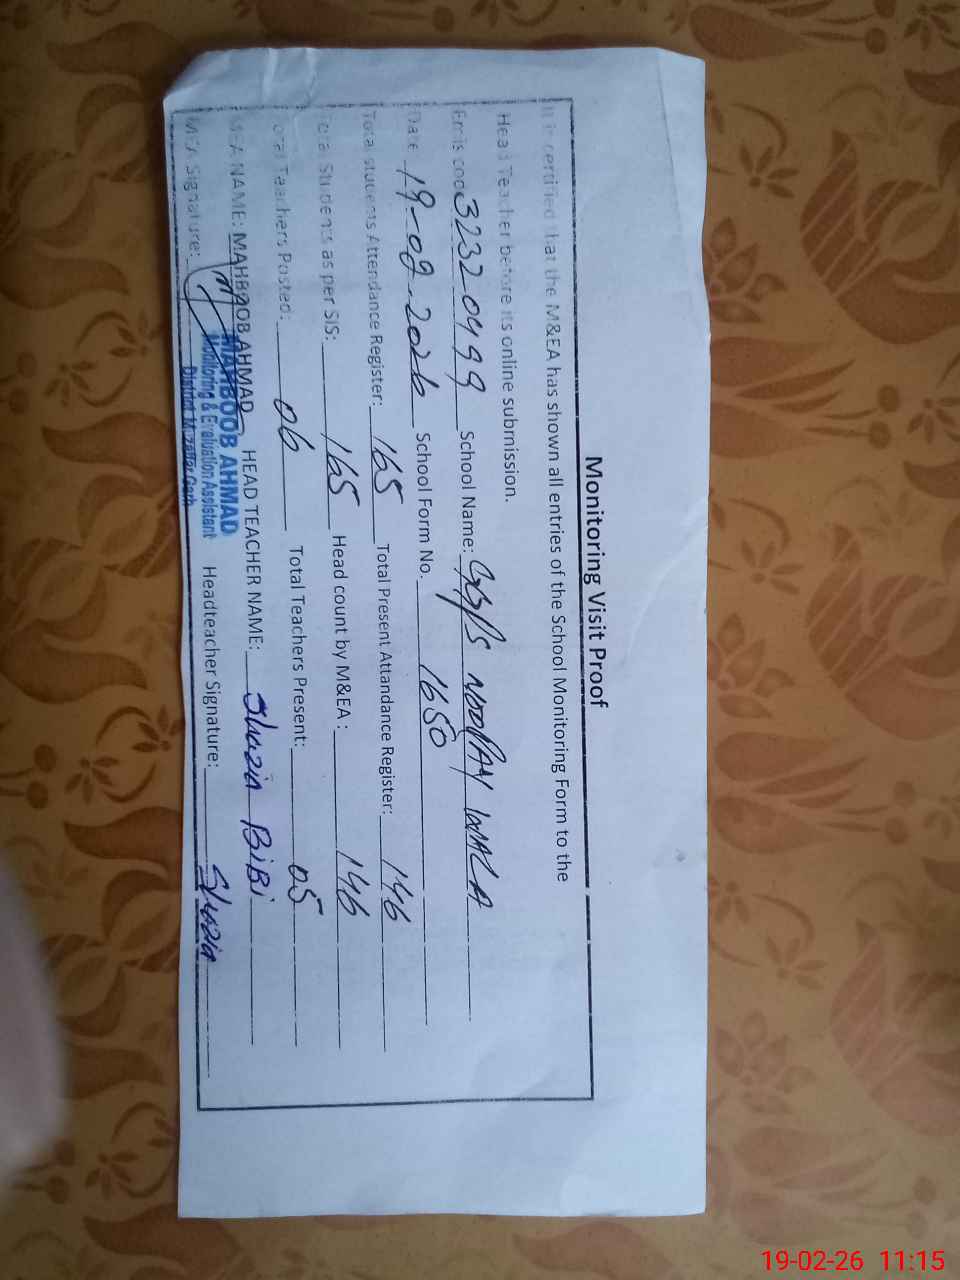 Monitoring Visit Proof
It is certified that the M&EA has shown all entries of the School Monitoring Form to the
Head Teacher before its online submission.
Emis code 32320499 School Name: NOORAY WALA
Date 19-02-2026 School Form No. 1650
Total students Attendance Register: 165 Total Present Attandance Register: 146
Total Students as per SIS: 165 Head count by M&EA : 146
Total Teachers Posted: 06 Total Teachers Present: 05
MEA NAME: MAHBOOB AHMAD HEAD TEACHER NAME: Shazia BiBi
MEA Signature: Headteacher Signature: Shazia
MAHBOOB AHMAD
Monitoring & Evaluation Assistant
District Muzaffar Garh
19-02-26 11:15